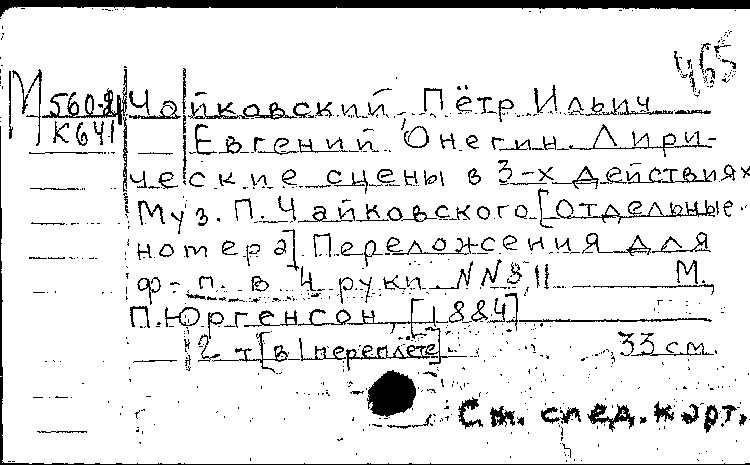 465
М 560-21 Чайковский, Пётр Ильич
К641 Евгений Онегин. Лири-
ческие сцены в 3-х действиях
Муз. П. Чайковского [Отдельные
номера] Переложения для
ф-п. в 4 руки. NN 8, 11 М.,
П. Юргенсон, [1884]
2 т [в 1 переплёте] 33 см.
См. след. карт.